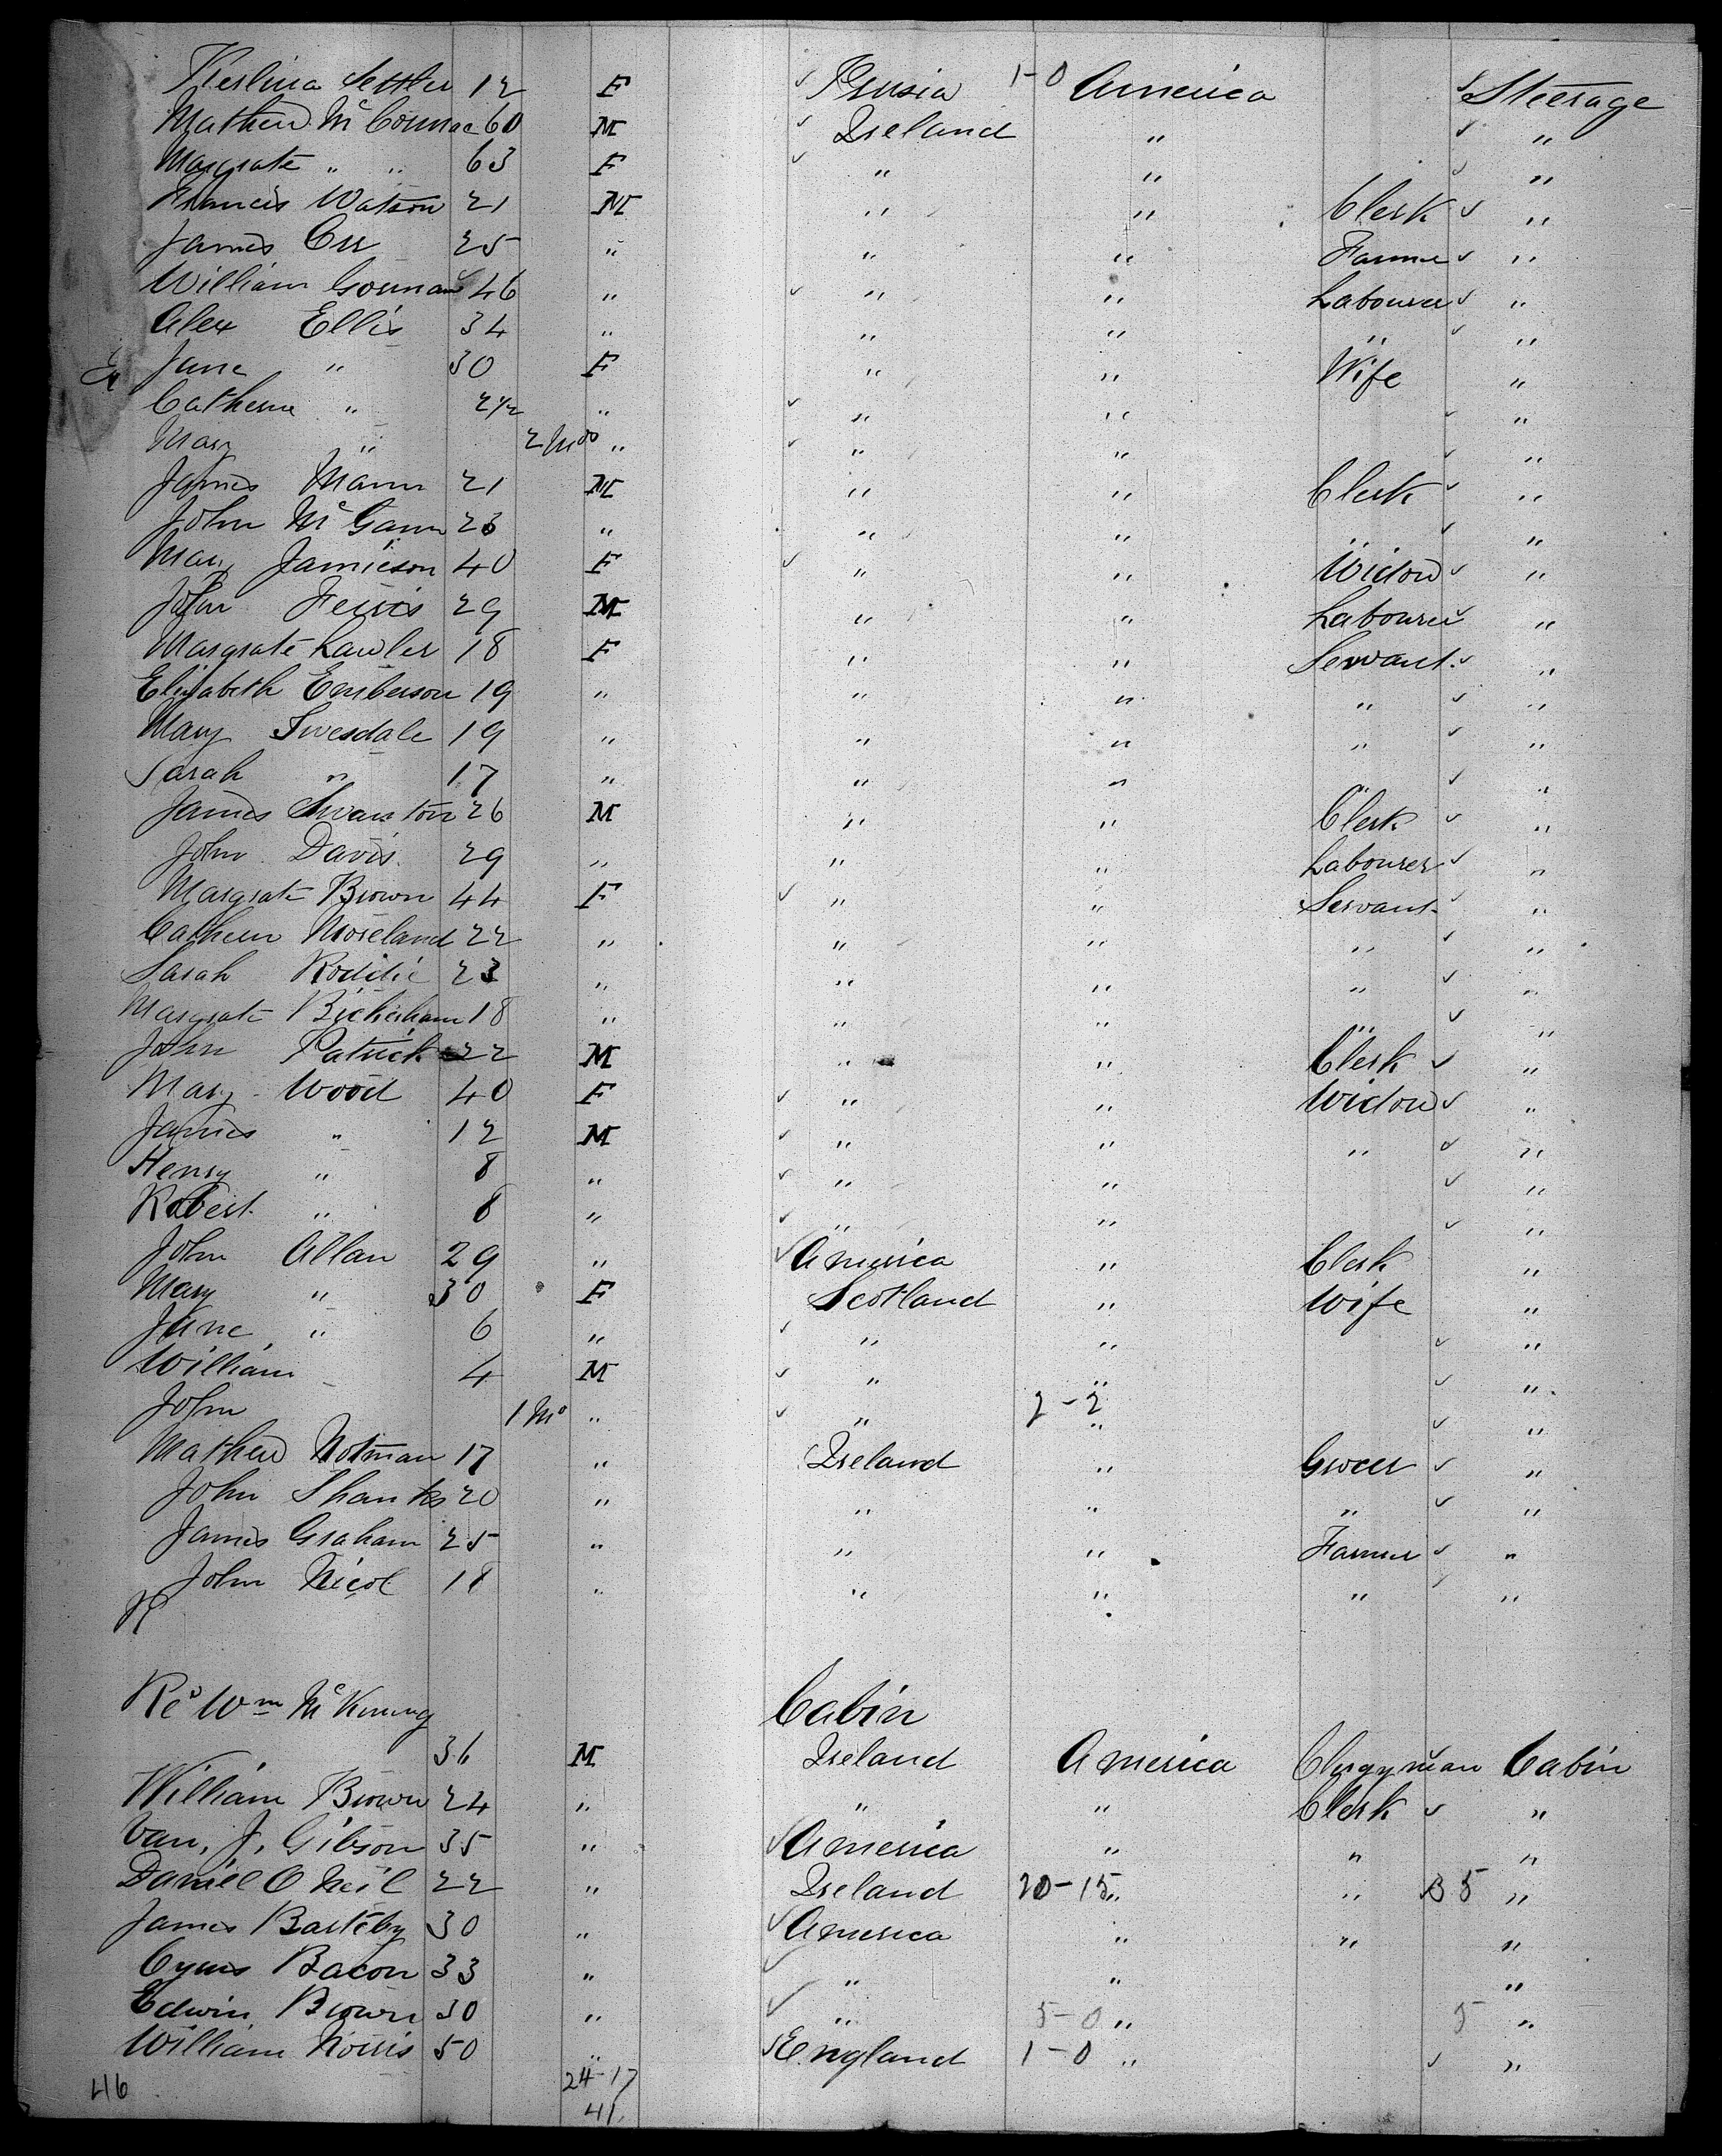 Settler 12 F ✓ Prusia 1-0 America ✓ Steerage
Mathew McCormac 60 M ✓ Ireland " ✓ "
Margrate " " 63 F ✓ " " ✓ "
Francis Watson 21 M " " Clerk ✓ "
James Orr 25 " " " Farmer ✓ "
William Gorman 46 " ✓ " " Labourer ✓ "
Alex Ellis 34 " " " " ✓ "
Jane " 30 F " " Wife "
Catherine " 2 1/2 " ✓ " " ✓ "
Mary " 2 Mos " ✓ " " ✓ "
James Mann 21 M " " Clerk ✓ "
John McGann 23 " " " " ✓ "
Mary Jamieson 40 F ✓ " " Widow ✓ "
John Ferris 29 M " " Labourer ✓ "
Margrate Lawler 18 F " " Servant ✓ "
Elizabeth Emberson 19 " " " " ✓ "
Mary Swesdale 19 " " " " ✓ "
Sarah " 17 " " " " ✓ "
James Swanston 26 M " " Clerk ✓ "
John Davis 29 " " " Labourer ✓ "
Margrate Brown 44 F ✓ " " Servant ✓ "
Cathern Moreland 22 " " " " ✓ "
Sarah Roddie 23 " " " " ✓ "
Margrate 18 " " " " ✓ "
John Patrick 22 M " " Clerk ✓ "
Mary Wood 40 F ✓ " " Widow ✓ "
James " 12 M ✓ " " " ✓ "
Henry " 8 " ✓ " " ✓ "
Robert " 8 " ✓ " " ✓ "
John Allan 29 " ✓ America " Clerk "
Mary " 30 F Scotland " Wife "
Jane " 6 " ✓ " " ✓ "
William 4 M ✓ " " ✓ "
John 1 Mo " ✓ " 2-2 " ✓ "
Mathew Notman 17 " Ireland " Grocer ✓ "
John Shanks 20 " " " " ✓ "
James Graham 25 " " " Farmer ✓ "
John Nicol 18 " " " " ✓ "
Revd Wm McKinney Cabin
36 M Ireland America Clergyman Cabin
William Brown 24 " " " Clerk ✓ "
Van. J. Gibson 35 " ✓ America " " "
Daniel O Neil 22 " Ireland 20-15 " " 35 "
James Barteby 30 " ✓ America " " "
Cyrus Bacon 33 " ✓ " " "
Edwin Brown 30 " ✓ " 5-0 " 5 "
William Norris 50 " ✓ England 1-0 " ✓ "
24-17
46 41